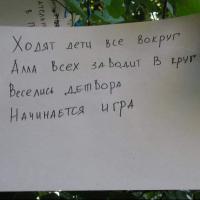 Ходят дети все вокруг
Алла всех заводит в круг
Веселись детвора
Начинается игра